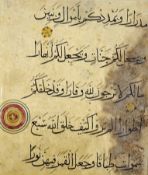 مدرارا ويمددكم بأموال وبنين
ويجعل لكم جنات ويجعل لكم أنهارا
ما لكم لا ترجون لله وقارا وقد خلقكم
أطوارا ألم تروا كيف خلق الله سبع
سموات طباقا وجعل القمر فيهن نورا